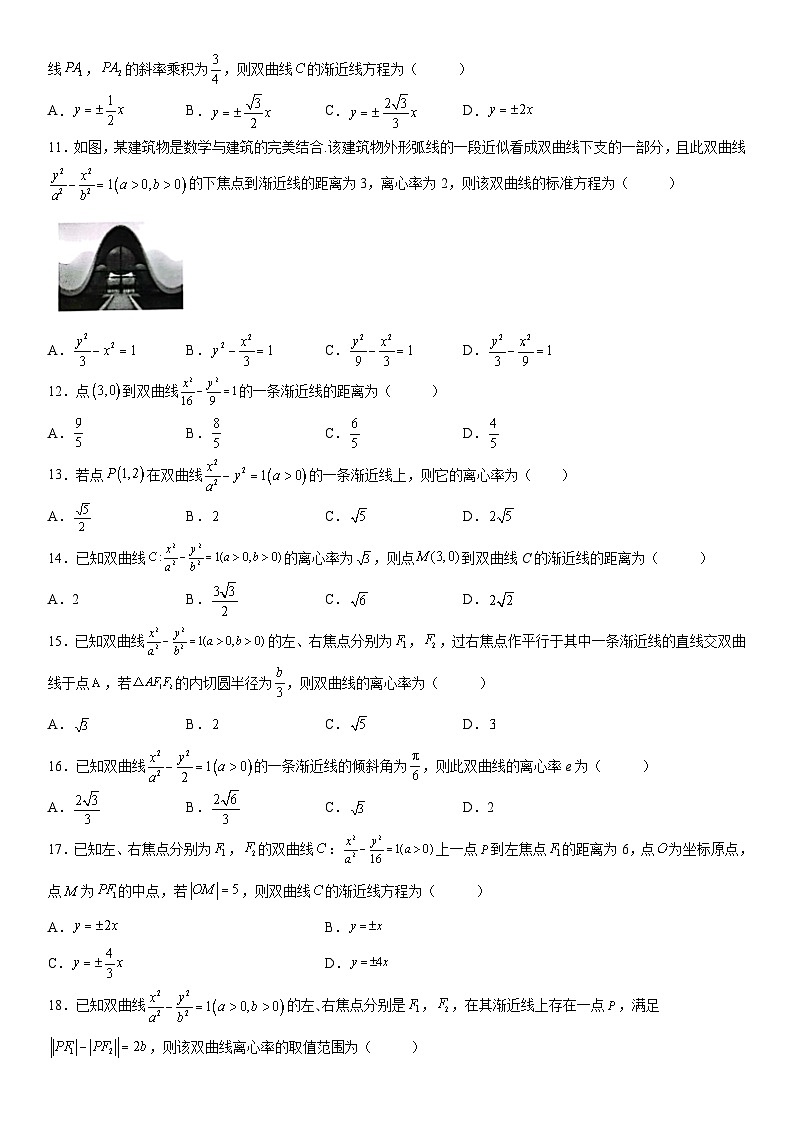 线 $PA_1$，$PA_2$ 的斜率乘积为 $\frac{3}{4}$，则双曲线 $C$ 的渐近线方程为（　　）
A．$y=\pm\frac{1}{2}x$　　B．$y=\pm\frac{\sqrt{3}}{2}x$　　C．$y=\pm\frac{2\sqrt{3}}{3}x$　　D．$y=\pm 2x$
11．如图，某建筑物是数学与建筑的完美结合.该建筑物外形弧线的一段近似看成双曲线下支的一部分，且此双曲线
$\frac{y^2}{a^2}-\frac{x^2}{b^2}=1(a>0,b>0)$ 的下焦点到渐近线的距离为 3，离心率为 2，则该双曲线的标准方程为（　　）
A．$\frac{y^2}{3}-x^2=1$　　B．$y^2-\frac{x^2}{3}=1$　　C．$\frac{y^2}{9}-\frac{x^2}{3}=1$　　D．$\frac{y^2}{3}-\frac{x^2}{9}=1$
12．点 $(3,0)$ 到双曲线 $\frac{x^2}{16}-\frac{y^2}{9}=1$ 的一条渐近线的距离为（　　）
A．$\frac{9}{5}$　　B．$\frac{8}{5}$　　C．$\frac{6}{5}$　　D．$\frac{4}{5}$
13．若点 $P(1,2)$ 在双曲线 $\frac{x^2}{a^2}-y^2=1(a>0)$ 的一条渐近线上，则它的离心率为（　　）
A．$\frac{\sqrt{5}}{2}$　　B．2　　C．$\sqrt{5}$　　D．$2\sqrt{5}$
14．已知双曲线 $C:\frac{x^2}{a^2}-\frac{y^2}{b^2}=1(a>0,b>0)$ 的离心率为 $\sqrt{3}$，则点 $M(3,0)$ 到双曲线 $C$ 的渐近线的距离为（　　）
A．2　　B．$\frac{3\sqrt{3}}{2}$　　C．$\sqrt{6}$　　D．$2\sqrt{2}$
15．已知双曲线 $\frac{x^2}{a^2}-\frac{y^2}{b^2}=1(a>0,b>0)$ 的左、右焦点分别为 $F_1$，$F_2$，过右焦点作平行于其中一条渐近线的直线交双曲
线于点 A，若 $\triangle AF_1F_2$ 的内切圆半径为 $\frac{b}{3}$，则双曲线的离心率为（　　）
A．$\sqrt{3}$　　B．2　　C．$\sqrt{5}$　　D．3
16．已知双曲线 $\frac{x^2}{a^2}-\frac{y^2}{2}=1(a>0)$ 的一条渐近线的倾斜角为 $\frac{\pi}{6}$，则此双曲线的离心率 $e$ 为（　　）
A．$\frac{2\sqrt{3}}{3}$　　B．$\frac{2\sqrt{6}}{3}$　　C．$\sqrt{3}$　　D．2
17．已知左、右焦点分别为 $F_1$，$F_2$ 的双曲线 $C:\frac{x^2}{a^2}-\frac{y^2}{16}=1(a>0)$ 上一点 $P$ 到左焦点 $F_1$ 的距离为 6，点 $O$ 为坐标原点，
点 $M$ 为 $PF_1$ 的中点，若 $|OM|=5$，则双曲线 $C$ 的渐近线方程为（　　）
A．$y=\pm 2x$　　B．$y=\pm x$
C．$y=\pm\frac{4}{3}x$　　D．$y=\pm 4x$
18．已知双曲线 $\frac{x^2}{a^2}-\frac{y^2}{b^2}=1(a>0,b>0)$ 的左、右焦点分别是 $F_1$，$F_2$，在其渐近线上存在一点 $P$，满足
$||PF_1|-|PF_2||=2b$，则该双曲线离心率的取值范围为（　　）